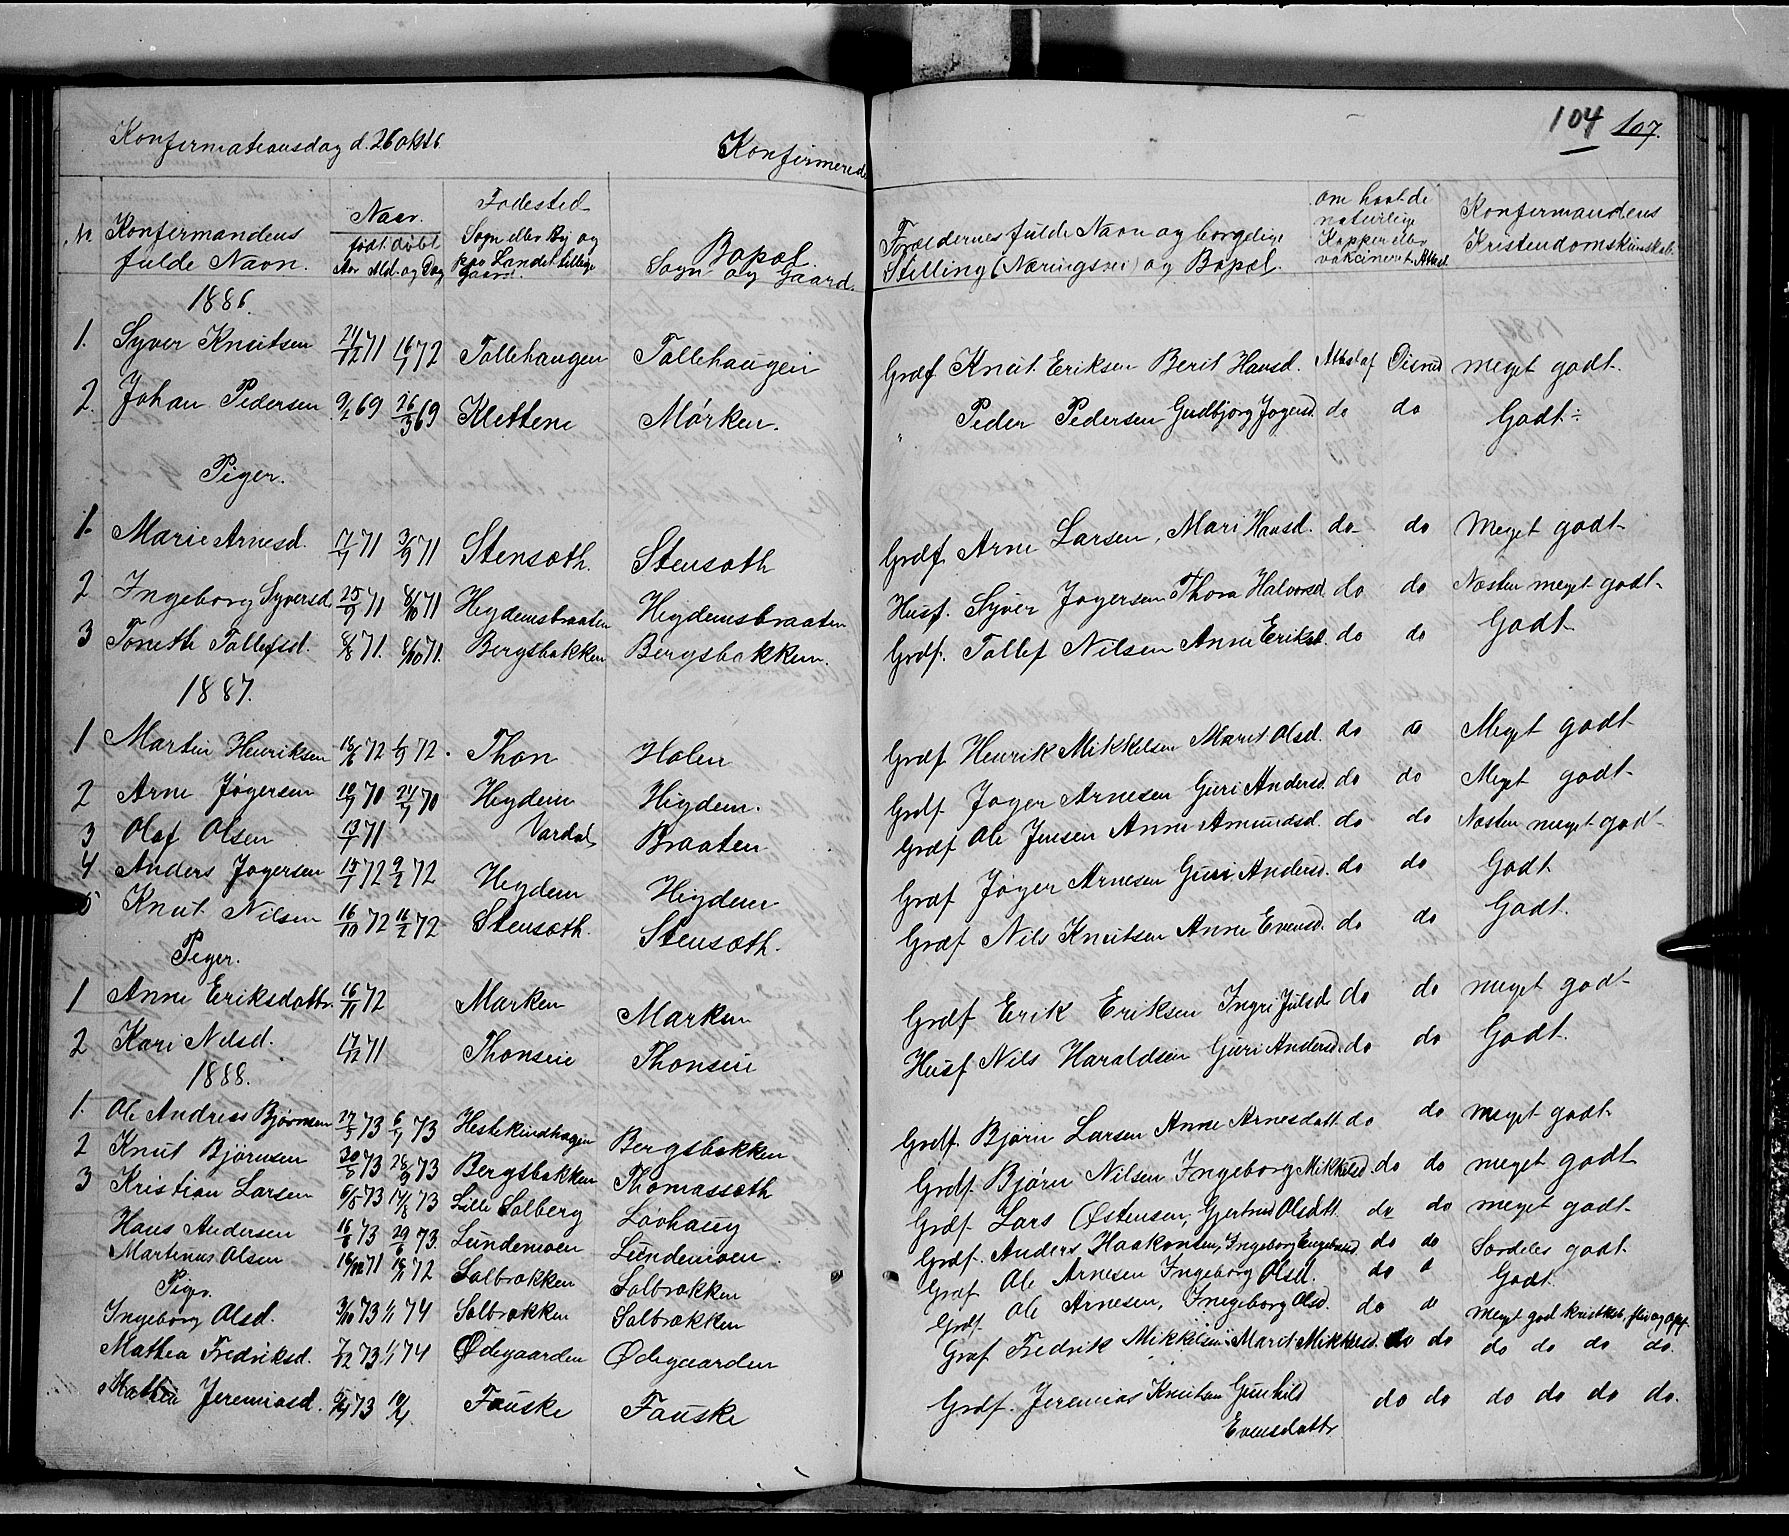 Konfirmationsdag d. 26 okt
Konfirmerede
104 107.
№ Konfirmandens fulde Navn.
Naar. født døbt Aar Md. og Dag
Fødested Sogn eller By og paa Landet tillige Gaard.
Bopæl. Sogn og Gaard.
Forældrenes fulde Navn og borgelige Stilling (Næringsvei) og Bopæl.
om havt de naturlige Kopper eller vakcineret. Attest
Konfirmandens Kristendomskundskab.
1886.
1. Syver Knutsen 21/12 71 16/1 72 Tollehaugen Tollehaugen Grdf Knut Eriksen Berit Hansd. Attest af meget godt.
2. Johan Pedersen 9/2 69 26/3 69 Klettene Mørken. " Peder Pedersen Gudbjørg Jøgersd. do do Godt ÷
Piger.
1. Marie Arnesd. 17/7 71 3/9 71 Stensæth. Stensæth Grdf Arne Larsen, Mari Hansd. do do Meget godt
2 Ingeborg Syversd. 25/9 71 8/10 71 Hegdemsbraaten Higdemsbraaten Husf. Syver Jøgersen Thora Halvorsd do do Næsten meget godt
3 Toneth Tollefsd. 8/8 71. 8/10 71. Bergsbakken Bergsbakken. Grdf. Tollef Nilsen Anne Eriksd. do do Godt
1887.
1 Martin Henriksen 72 72. Thon Holen Grdf Henrik Mikkelsen Marit Olsd. do do Meget godt
2 Arne Jøgersen 10/7 70 24/7 70 Hegdem Higdem. Grdf. Jøger Arnesen Guri Andersd do do Meget godt
3 Olaf Olsen 13/7 71 Vardal Braaten Grdf Ole Jensen Anne Amundsd. do do Næsten meget godt
4 Anders Jøgersen 15/1 72 9/2 72 Hegdem Higdem Grdf Jøger Arnesen Guri Andersd. do do Godt
5 Knut Nilsen 16/10 72 72 Stensæth. Stensæth. Grdf Nils Knutsen Anne Evensd. do do Godt.
Piger.
1 Anne Eriksdattr. 16/11 72 Marken Marken Grdf Erik Eriksen Ingri Julsd do do meget godt
2 Kari Nilsd. 17/12 71 Thonseie Thonseie Husf Nils Haraldsen Guri Andersd. do do Godt.
1888.
1. Ole Andreas Bjørnsen 27/5 73 73 Hestekindhagen Bergsbakken Grdf. Bjørn Larsen Anne Arnesdatt do do meget godt
2 Knut Bjørnsen 73 28/9 73 Bergsbakken Thomassæth Grdf. Bjørn Nilsen Ingeborg Mikkelsd do do meget godt
3 Kristian Larsen 6/5 73 17/8 73 Lille Solberg Løvhaug Grdf. Lars Østensen, Gjertrud Olsdtt do do meget godt
Hans Andersen 16/6 73 29/6 73. Lundemoen Lundemoen. Grdf. Anders Haakonsen, Ingeborg do do Særdeles godt
Martinus Olsen 71 72 Solbrækken Solbrækken Grdf Ole Arnesen Ingeborg Olsd. do d Godt.
Piger.
Ingeborg Olsd. 3/10 73 1/1 74 Solbrækken Solbrækken Grdf. Ole Arnesen, Ingeborg Olsd. do do Meget god kristk., flid og opf
Mathea Fredriksd. 7/12 73 1/1 74 Ødegaarden Ødegaarden Grdf Fredrik Mikkelsen Marit Mikkelsd do do do do do do.
Mathea Jeremiasd. 73 Fauske Fauske Grdf. Jeremias Knutsen Gunhild Evensdattr do do do do do do.